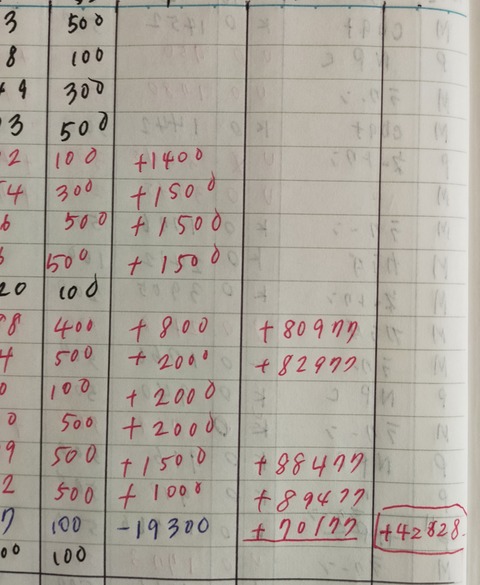 3 500
8 100
9 300
3 500
2 100 +1400
4 300 +1500
6 500 +1500
500 +1500
20 100
98 400 +800 +80977
4 500 +2000 +82977
0 100 +2000
0 500 +2000
9 500 +1500 +88477
2 500 +1000 +89477
7 100 -19300 +70177 +42828
00 100